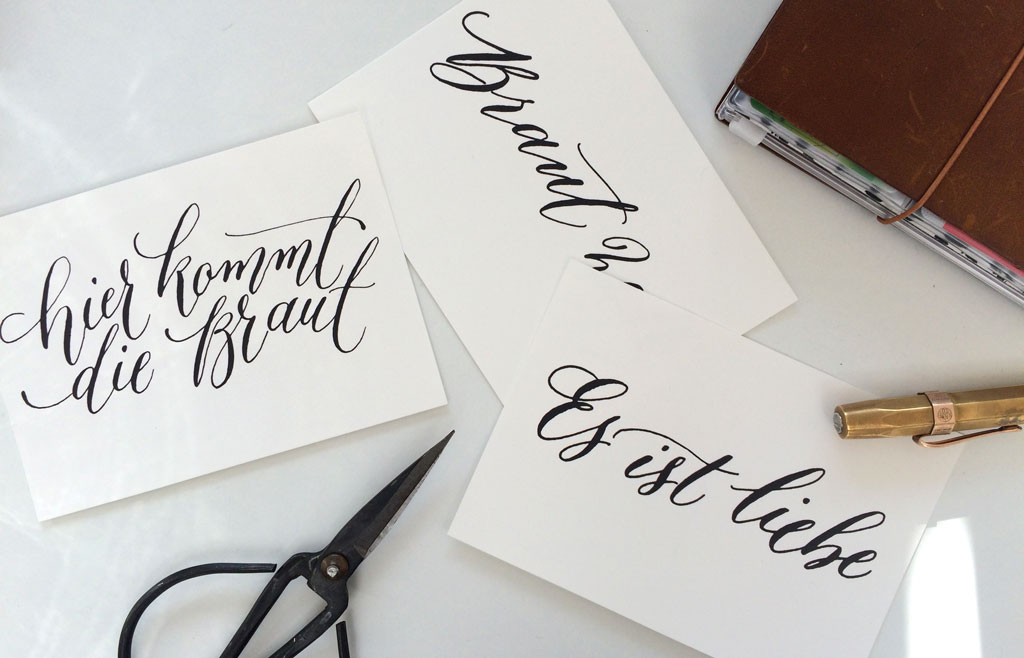 hier kommt
die Braut
Braut
Es ist liebe